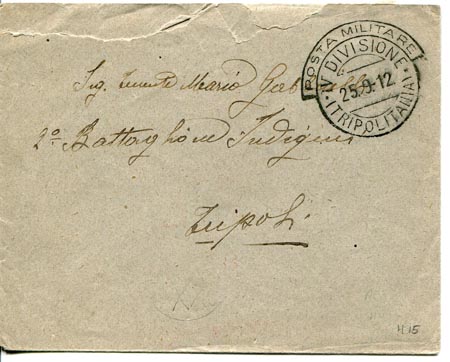 POSTA MILITARE
IV DIVISIONE
25.9.12
(TRIPOLITANIA)
Sig. Tenente Mario
2º Battaglione Indigeni
Tripoli
H15